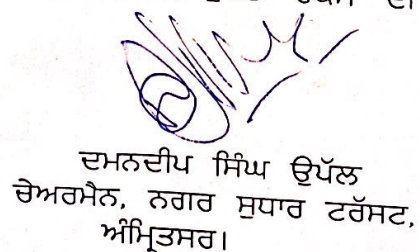 ਦਮਨਦੀਪ ਸਿੰਘ ਉਪੱਲ
ਚੇਅਰਮੈਨ, ਨਗਰ ਸੁਧਾਰ ਟਰੱਸਟ,
ਅੰਮ੍ਰਿਤਸਰ।